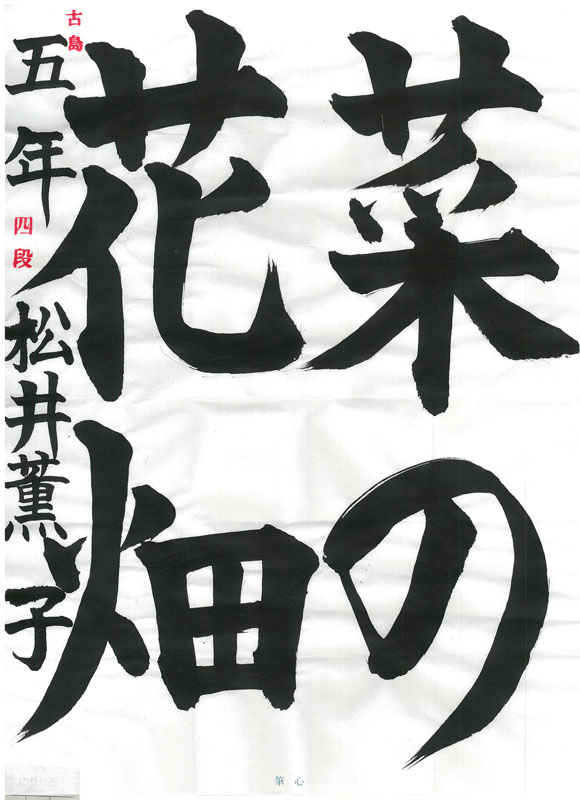 菜の
花畑
古島
五年 四段 松井薫子
心筆